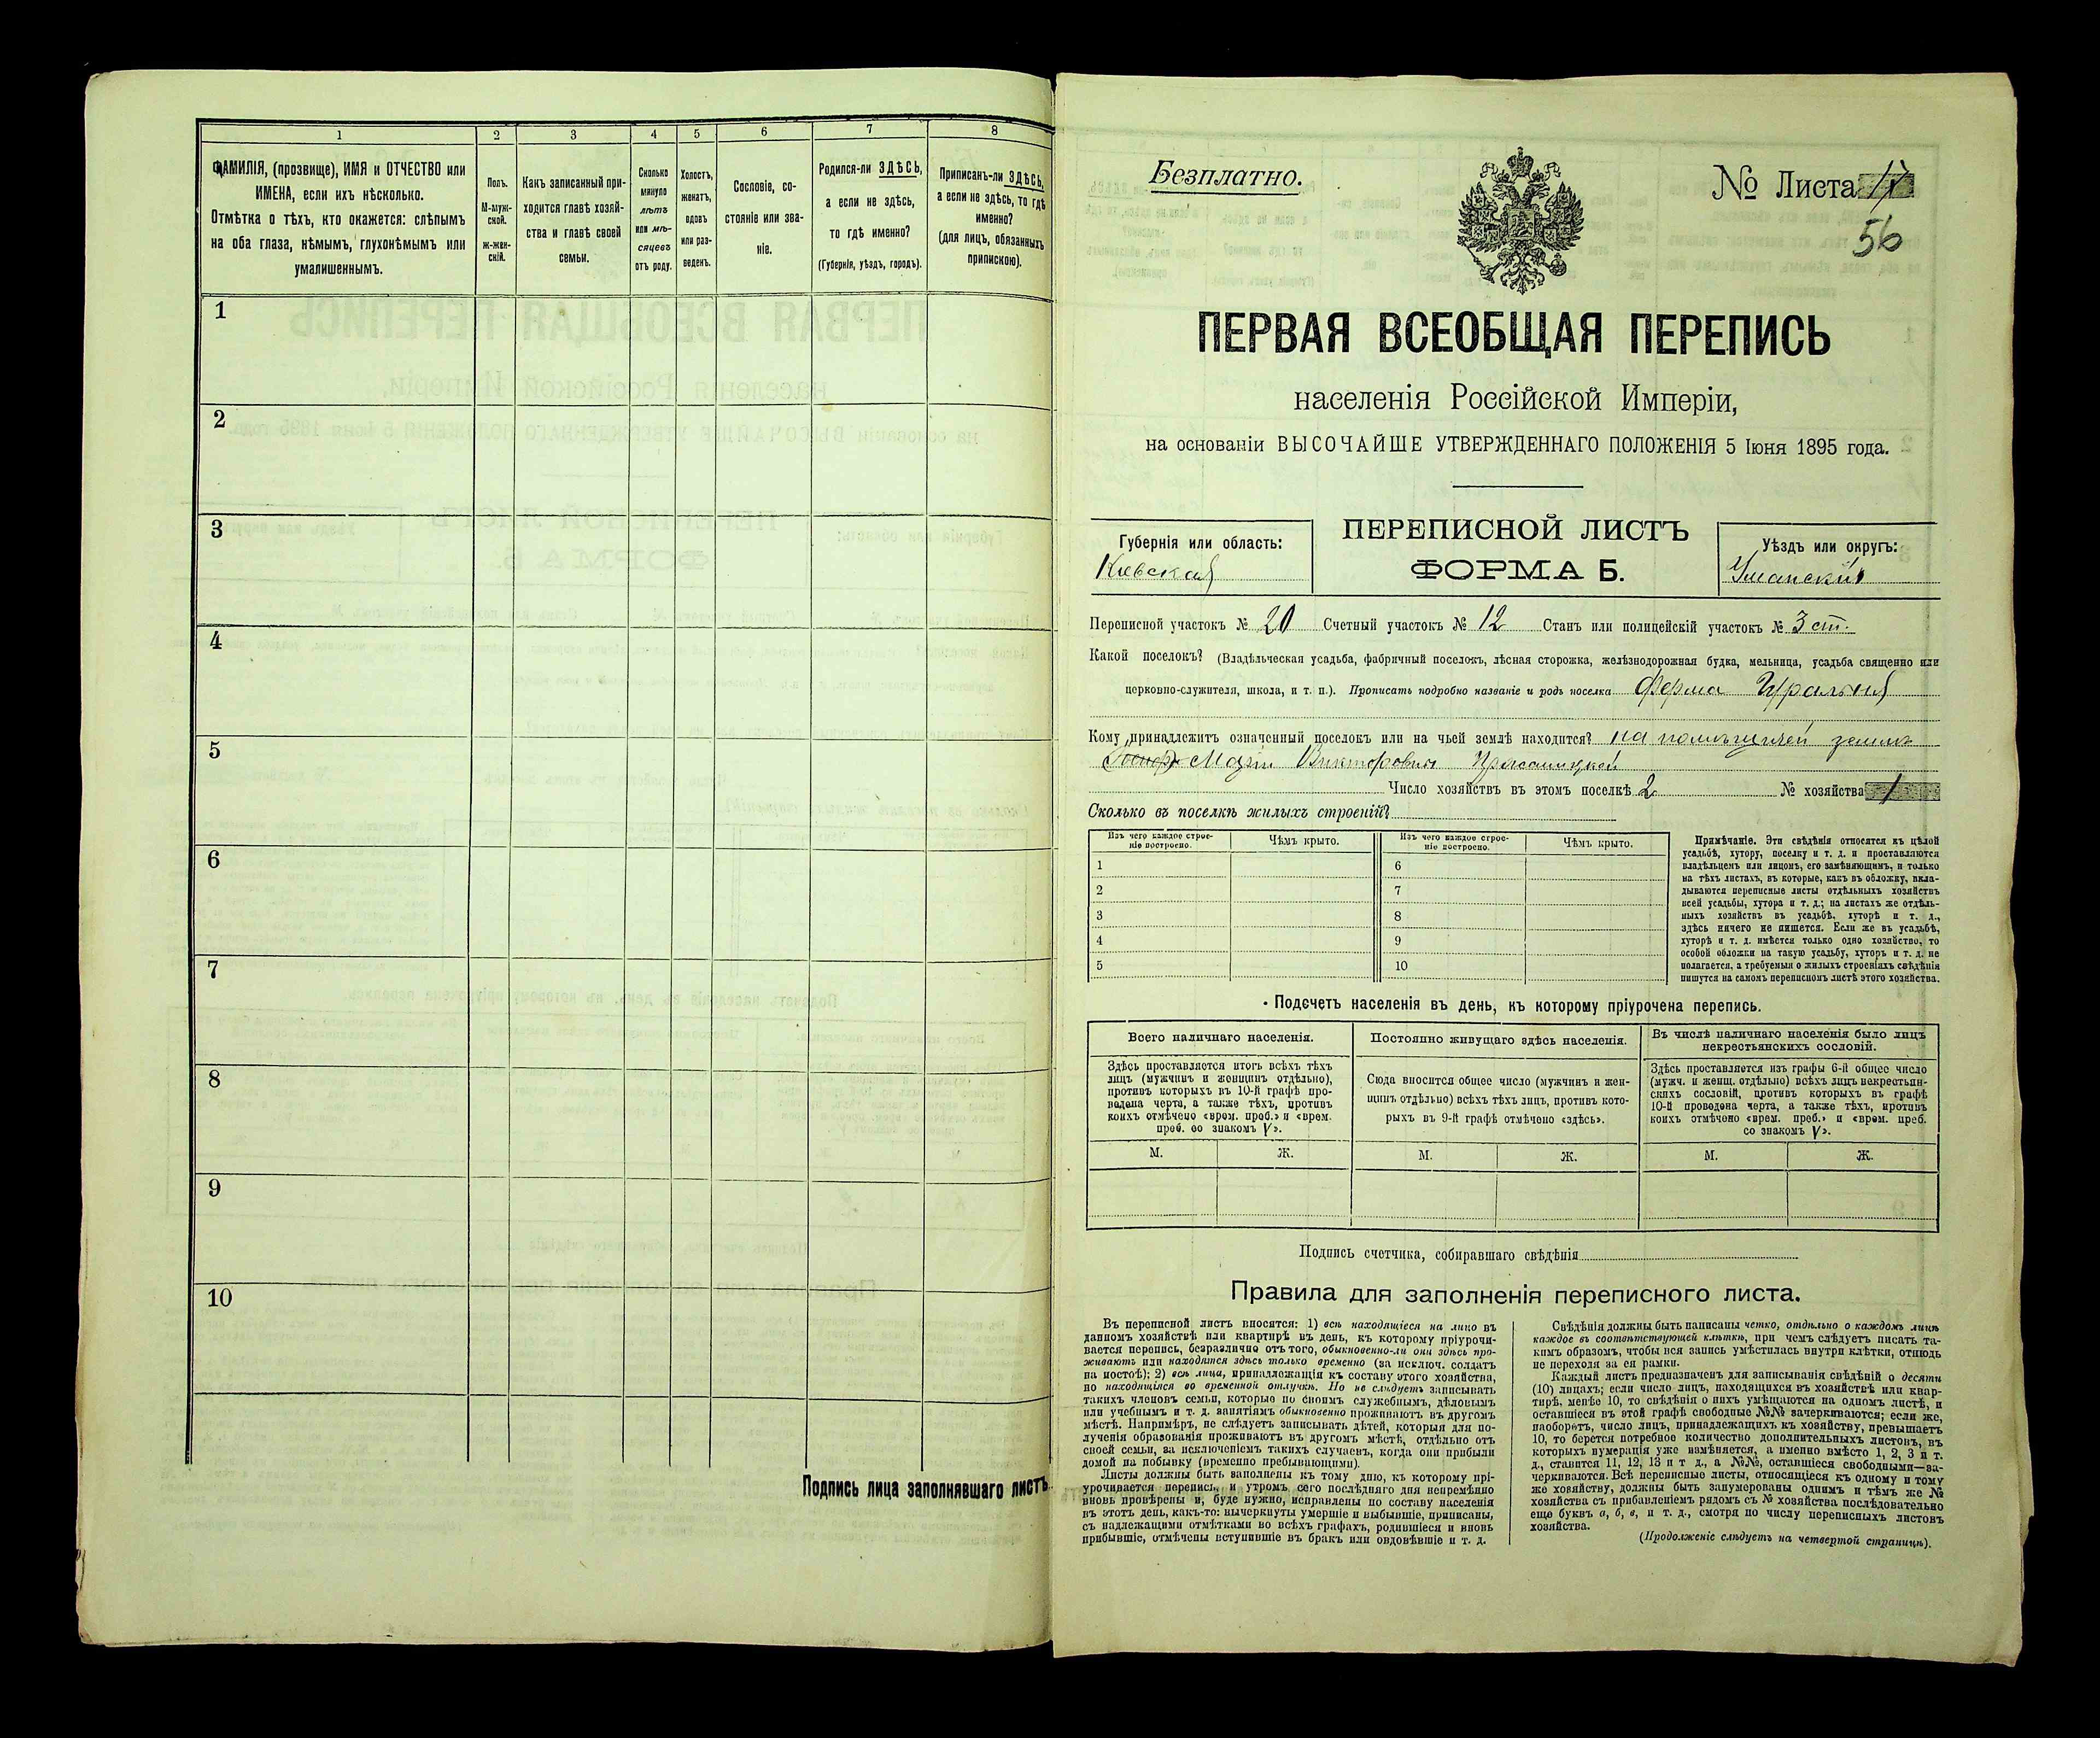 1 2 3 4 5 6 7 8
ФАМИЛІЯ, (прозвище), ИМЯ и ОТЧЕСТВО или
ИМЕНА, если ихъ нѣсколько.
Отмѣтка о тѣхъ, кто окажется: слѣпымъ
на оба глаза, нѣмымъ, глухонѣмымъ или
умалишеннымъ.
Полъ.
М-муж-
ской.
ж-жен-
скій.
Какъ записанный при-
ходится главѣ хозяй-
ства и главѣ своей
семьи.
Сколько
минуло
лѣтъ
или мѣ-
сяцевъ
отъ роду.
Холостъ,
женатъ,
вдовъ
или раз-
веденъ.
Сословіе, со-
стояніе или зва-
ніе.
Родился-ли ЗДѢСЬ,
а если не здѣсь,
то гдѣ именно?
(Губернія, уѣздъ, городъ).
Приписанъ-ли ЗДѢСЬ,
а если не здѣсь, то гдѣ
именно?
(для лицъ, обязанныхъ
припискою).
1
2
3
4
5
6
7
8
9
10
Подпись лица заполнявшаго листъ
Безплатно.
№ Листа
56
ПЕРВАЯ ВСЕОБЩАЯ ПЕРЕПИСЬ
населенія Россійской Имперіи,
на основаніи ВЫСОЧАЙШЕ УТВЕРЖДЕННАГО ПОЛОЖЕНІЯ 5 Іюня 1895 года.
Губернія или область:
Кіевская
ПЕРЕПИСНОЙ ЛИСТЪ
ФОРМА Б.
Уѣздъ или округъ:
Уманскій
Переписной участокъ № 20 Счетный участокъ № 12 Станъ или полицейскій участокъ № 3 ст.
Какой поселокъ? (Владѣльческая усадьба, фабричный поселокъ, лѣсная сторожка, желѣзнодорожная будка, мельница, усадьба священно или
церковно-служителя, школа, и т. п.). Прописать подробно названіе и родъ поселка Ферма
Кому принадлежитъ означенный поселокъ или на чьей землѣ находится? на помѣщичьей землѣ
Маріи Викторовны
Число хозяйствъ въ этомъ поселкѣ 2 № хозяйства 1
Сколько въ поселкѣ жилыхъ строеній?
Изъ чего каждое строе-
ніе построено.
Чѣмъ крыто.
Изъ чего каждое строе-
ніе построено.
Чѣмъ крыто.
1 6
2 7
3 8
4 9
5 10
Примѣчаніе. Эти свѣдѣнія относятся къ цѣлой
усадьбѣ, хутору, поселку и т. д. и проставляются
владѣльцемъ или лицомъ, его замѣняющимъ, и только
на тѣхъ листахъ, въ которые, какъ въ обложку, вкла-
дываются переписные листы отдѣльныхъ хозяйствъ
всей усадьбы, хутора и т. д.; на листахъ же отдѣль-
ныхъ хозяйствъ въ усадьбѣ, хуторѣ и т. д.,
здѣсь ничего не пишется. Если же въ усадьбѣ,
хуторѣ и т. д. имѣется только одно хозяйство, то
особой обложки на такую усадьбу, хуторъ и т. д. не
полагается, а требуемыя о жилыхъ строеніяхъ свѣдѣнія
пишутся на самомъ переписномъ листѣ этого хозяйства.
Подсчетъ населенія въ день, къ которому пріурочена перепись.
Всего наличнаго населенія.
Здѣсь проставляется итогъ всѣхъ тѣхъ
лицъ (мужчинъ и женщинъ отдѣльно),
противъ которыхъ въ 10-й графѣ про-
ведена черта, а также тѣхъ, противъ
коихъ отмѣчено «врем. преб.» и «врем.
преб. со знакомъ V».
Постоянно живущаго здѣсь населенія.
Сюда вносится общее число (мужчинъ и жен-
щинъ отдѣльно) всѣхъ тѣхъ лицъ, противъ кото-
рыхъ въ 9-й графѣ отмѣчено «здѣсь».
Въ числѣ наличнаго населенія было лицъ
некрестьянскихъ сословій.
Здѣсь проставляется изъ графы 6-й общее число
(мужч. и женщ. отдѣльно) всѣхъ лицъ некрестьян-
скихъ сословій, противъ которыхъ въ графѣ
10-й проведена черта, а также тѣхъ, противъ
коихъ отмѣчено «врем. преб.» и «врем. преб.
со знакомъ V».
М. Ж. М. Ж. М. Ж.
Подпись счетчика, собиравшаго свѣдѣнія
Правила для заполненія переписного листа.
Въ переписной листъ вносятся: 1) всѣ находящіеся на лицо въ
данномъ хозяйствѣ или квартирѣ въ день, къ которому пріурочи-
вается перепись, безразлично отъ того, обыкновенно-ли они здѣсь про-
живаютъ или находятся здѣсь только временно (за исключ. солдатъ
на постоѣ); 2) всѣ лица, принадлежащія къ составу этого хозяйства,
но находящіяся во временной отлучкѣ. Но не слѣдуетъ записывать
такихъ членовъ семьи, которые по своимъ служебнымъ, дѣловымъ
или учебнымъ и т. д. занятіямъ обыкновенно проживаютъ въ другомъ
мѣстѣ. Напримѣръ, не слѣдуетъ записывать дѣтей, которыя для по-
лученія образованія проживаютъ въ другомъ мѣстѣ, отдѣльно отъ
своей семьи, за исключеніемъ такихъ случаевъ, когда они прибыли
домой на побывку (временно пребывающими).
Листы должны быть заполнены къ тому дню, къ которому прі-
урочивается перепись, и утромъ сего послѣдняго дня непремѣнно
вновь провѣрены и, буде нужно, исправлены по составу населенія
въ этотъ день, какъ-то: вычеркнуты умершіе и выбывшіе, приписаны,
съ надлежащими отмѣтками во всѣхъ графахъ, родившіеся и вновь
прибывшіе, отмѣчены вступившіе въ бракъ или овдовѣвшіе и т. д.
Свѣдѣнія должны быть написаны четко, отдѣльно о каждомъ лицѣ
каждое въ соотвѣтствующей клѣткѣ, при чемъ слѣдуетъ писать та-
кимъ образомъ, чтобы вся запись умѣстилась внутри клѣтки, отнюдь
не переходя за ея рамки.
Каждый листъ предназначенъ для записыванія свѣдѣній о десяти
(10) лицахъ; если число лицъ, находящихся въ хозяйствѣ или квар-
тирѣ, менѣе 10, то свѣдѣнія о нихъ умѣщаются на одномъ листѣ, и
оставшіеся въ этой графѣ свободные №№ зачеркиваются; если же,
наоборотъ, число лицъ, принадлежащихъ къ хозяйству, превышаетъ
10, то берется потребное количество дополнительныхъ листовъ, въ
которыхъ нумерація уже измѣняется, а именно вмѣсто 1, 2, 3 и т.
д., ставится 11, 12, 13 и т д., а №№, оставшіеся свободными—за-
черкиваются. Всѣ переписные листы, относящіеся къ одному и тому
же хозяйству, должны быть занумерованы однимъ и тѣмъ же №
хозяйства съ прибавленіемъ рядомъ съ № хозяйства послѣдовательно
еще буквъ а, б, в, и т. д., смотря по числу переписныхъ листовъ
хозяйства.
(Продолженіе слѣдуетъ на четвертой страницѣ).